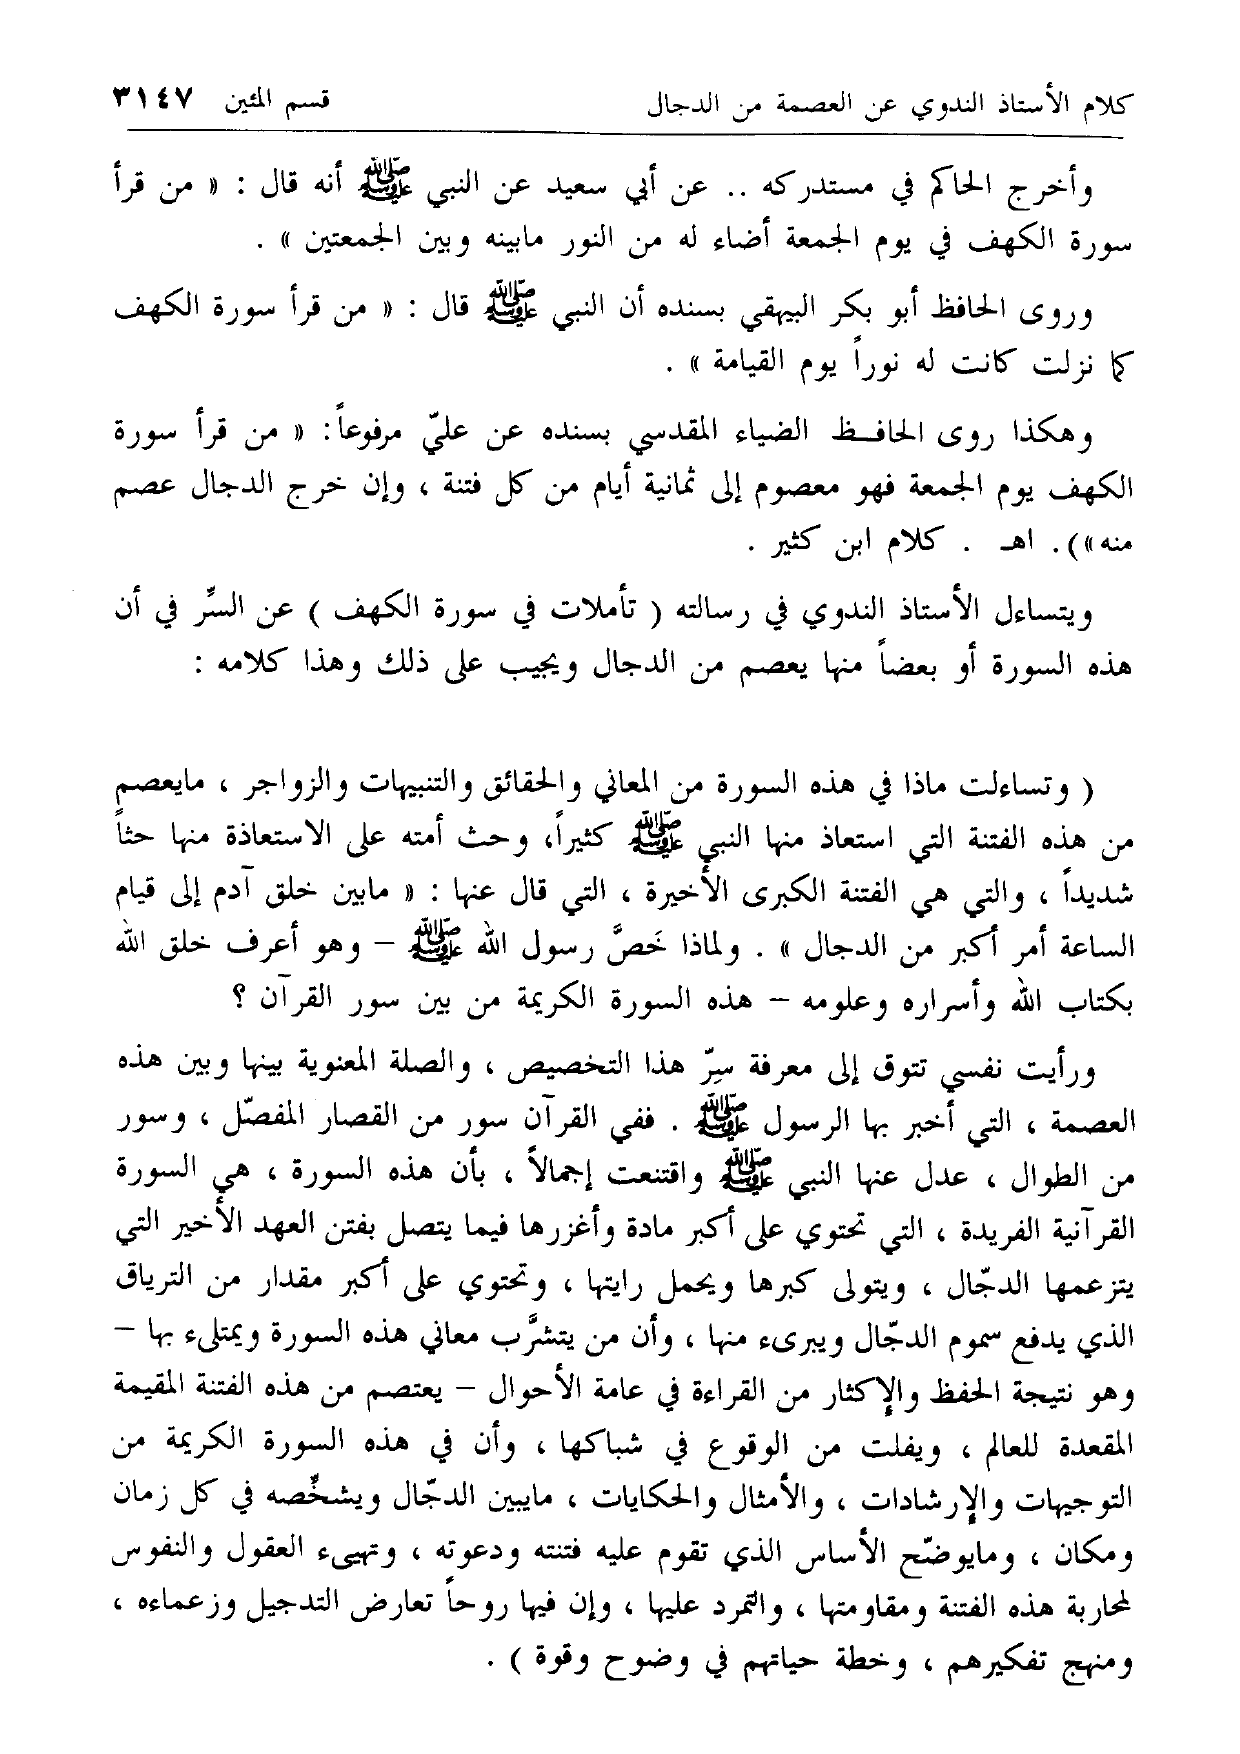 كلام الأستاذ الندوي عن العصمة من الدجال قسم المئين ٣١٤٧
وأخرج الحاكم في مستدركه .. عن أبي سعيد عن النبي ﷺ أنه قال : « من قرأ
سورة الكهف في يوم الجمعة أضاء له من النور مابينه وبين الجمعتين » .
وروى الحافظ أبو بكر البيهقي بسنده أن النبي ﷺ قال : « من قرأ سورة الكهف
كما نزلت كانت له نوراً يوم القيامة » .
وهكذا روى الحافـظ الضياء المقدسي بسنده عن عليّ مرفوعاً: « من قرأ سورة
الكهف يوم الجمعة فهو معصوم إلى ثمانية أيام من كل فتنة ، وإن خرج الدجال عصم
منه»). اهـ . كلام ابن كثير .
ويتساءل الأستاذ الندوي في رسالته ( تأملات في سورة الكهف ) عن السرِّ في أن
هذه السورة أو بعضاً منها يعصم من الدجال ويجيب على ذلك وهذا كلامه :
( وتساءلت ماذا في هذه السورة من المعاني والحقائق والتنبيهات والزواجر ، مايعصم
من هذه الفتنة التي استعاذ منها النبي ﷺ كثيراً، وحث أمته على الاستعاذة منها حثاً
شديداً ، والتي هي الفتنة الكبرى الأخيرة ، التي قال عنها : « مابين خلق آدم إلى قيام
الساعة أمر أكبر من الدجال » . ولماذا خَصَّ رسول الله ﷺ – وهو أعرف خلق الله
بكتاب الله وأسراره وعلومه – هذه السورة الكريمة من بين سور القرآن ؟
ورأيت نفسي تتوق إلى معرفة سِرّ هذا التخصيص ، والصلة المعنوية بينها وبين هذه
العصمة ، التي أخبر بها الرسول ﷺ . ففي القرآن سور من القصار المفصّل ، وسور
من الطوال ، عدل عنها النبي ﷺ واقتنعت إجمالاً ، بأن هذه السورة ، هي السورة
القرآنية الفريدة ، التي تحتوي على أكبر مادة وأغزرها فيما يتصل بفتن العهد الأخير التي
يتزعمها الدجّال ، ويتولى كبرها ويحمل رايتها ، وتحتوي على أكبر مقدار من الترياق
الذي يدفع سموم الدجّال ويبرىء منها ، وأن من يتشرَّب معاني هذه السورة ويمتلىء بها –
وهو نتيجة الحفظ والإكثار من القراءة في عامة الأحوال – يعتصم من هذه الفتنة المقيمة
المقعدة للعالم ، ويفلت من الوقوع في شباكها ، وأن في هذه السورة الكريمة من
التوجيهات والإرشادات ، والأمثال والحكايات ، مايبين الدجّال ويشخّصه في كل زمان
ومكان ، ومايوضّح الأساس الذي تقوم عليه فتنته ودعوته ، وتهيىء العقول والنفوس
لمحاربة هذه الفتنة ومقاومتها ، والتمرد عليها ، وإن فيها روحاً تعارض التدجيل وزعماءه ،
ومنهج تفكيرهم ، وخطة حياتهم في وضوح وقوة ) .